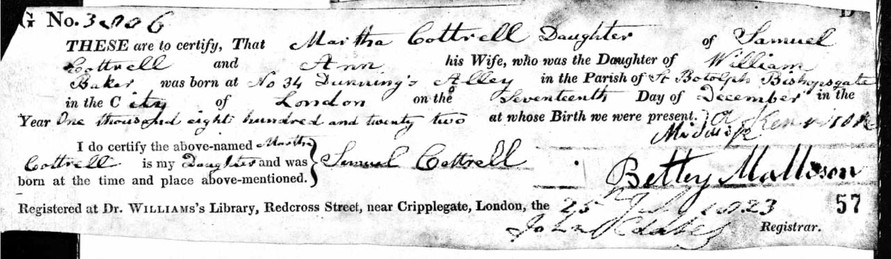 G No. 3006
THESE are to certify, That Martha Cottrell Daughter of Samuel
Cottrell and Ann his Wife, who was the Daughter of William
Baker was born at No 34 Dunning's Alley in the Parish of St Botolph Bishopsgate
in the City of London on the Seventeenth Day of December in the
Year One thousand eight hundred and twenty two at whose Birth we were present.
Midwife
I do certify the above-named Martha
Cottrell is my Daughter and was
born at the time and place above-mentioned.
Samuel Cottrell
Bettey Mallison
Registered at Dr. WILLIAMS's Library, Redcross Street, near Cripplegate, London, the 25 1823
57
John Registrar.